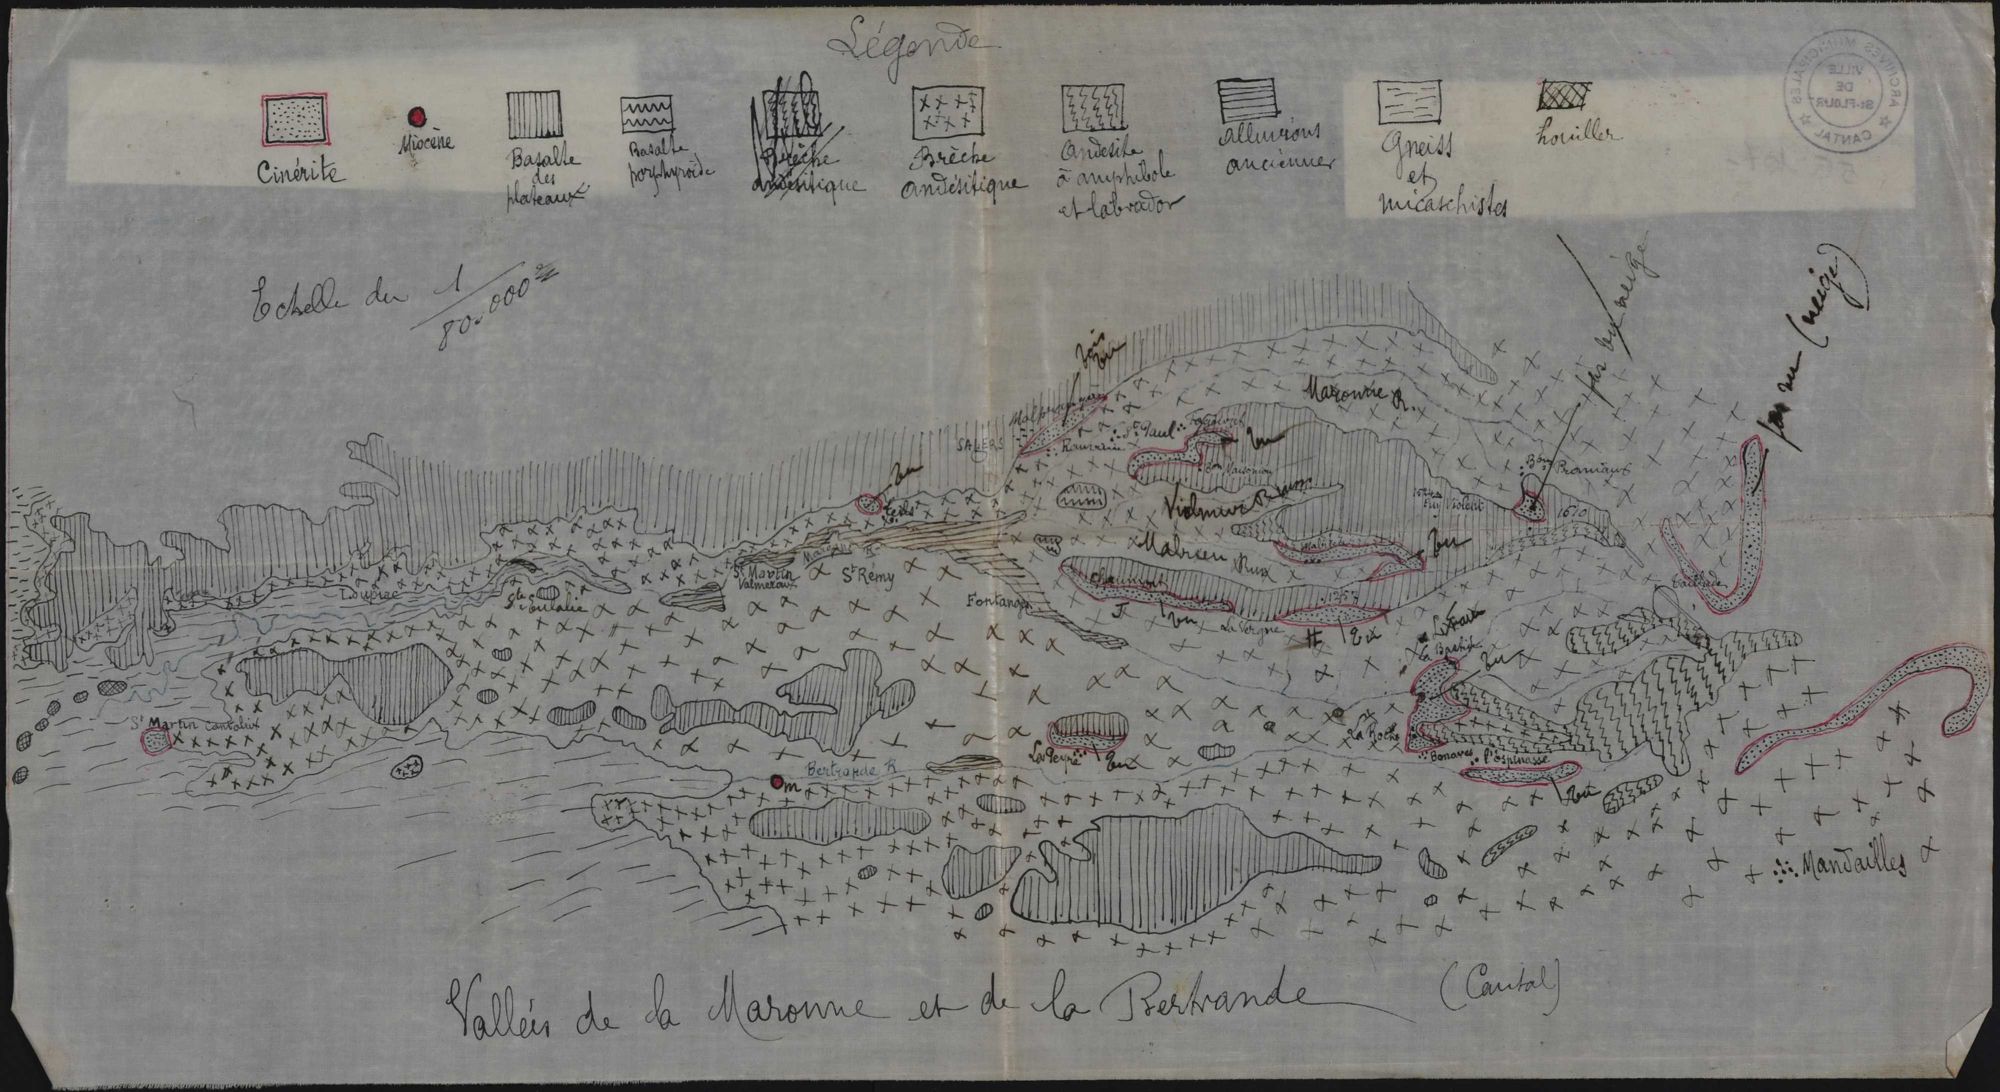 Légende
Cinérite
Miocène
Basalte
des
plateaux
Basalte
porphyroïde
Brèche
andésitique
Brèche
andésitique
Andésite
à amphibole
et labrador
Alluvions
anciennes
Gneiss
et
micaschistes
houiller
ARCHIVES MUNICIPALES
VILLE
DE
St-FLOUR
CANTAL
Echelle du 1/80.000e
pas vu neige
pas vu (neige)
bois
vu
Maronne R.
SALERS
St Paul
vu
vu
Teils
Bom Promiaux
Puy Violent
1670
Malrieu Rau
vu
Maronne R.
St Martin
Valmeroux
St Rémy
Loupiac
Ste Eulalie
Fontanges
Chaumont
J
vu
La Vergne
H
vu
La Bastide
vu
St Martin Cantalix
La Roche
Bonaves
l'Espinasse
La Peyre
vu
vu
Bertrande R
m
Mandailles
Vallées de la Maronne et de la Bertrande (Cantal)